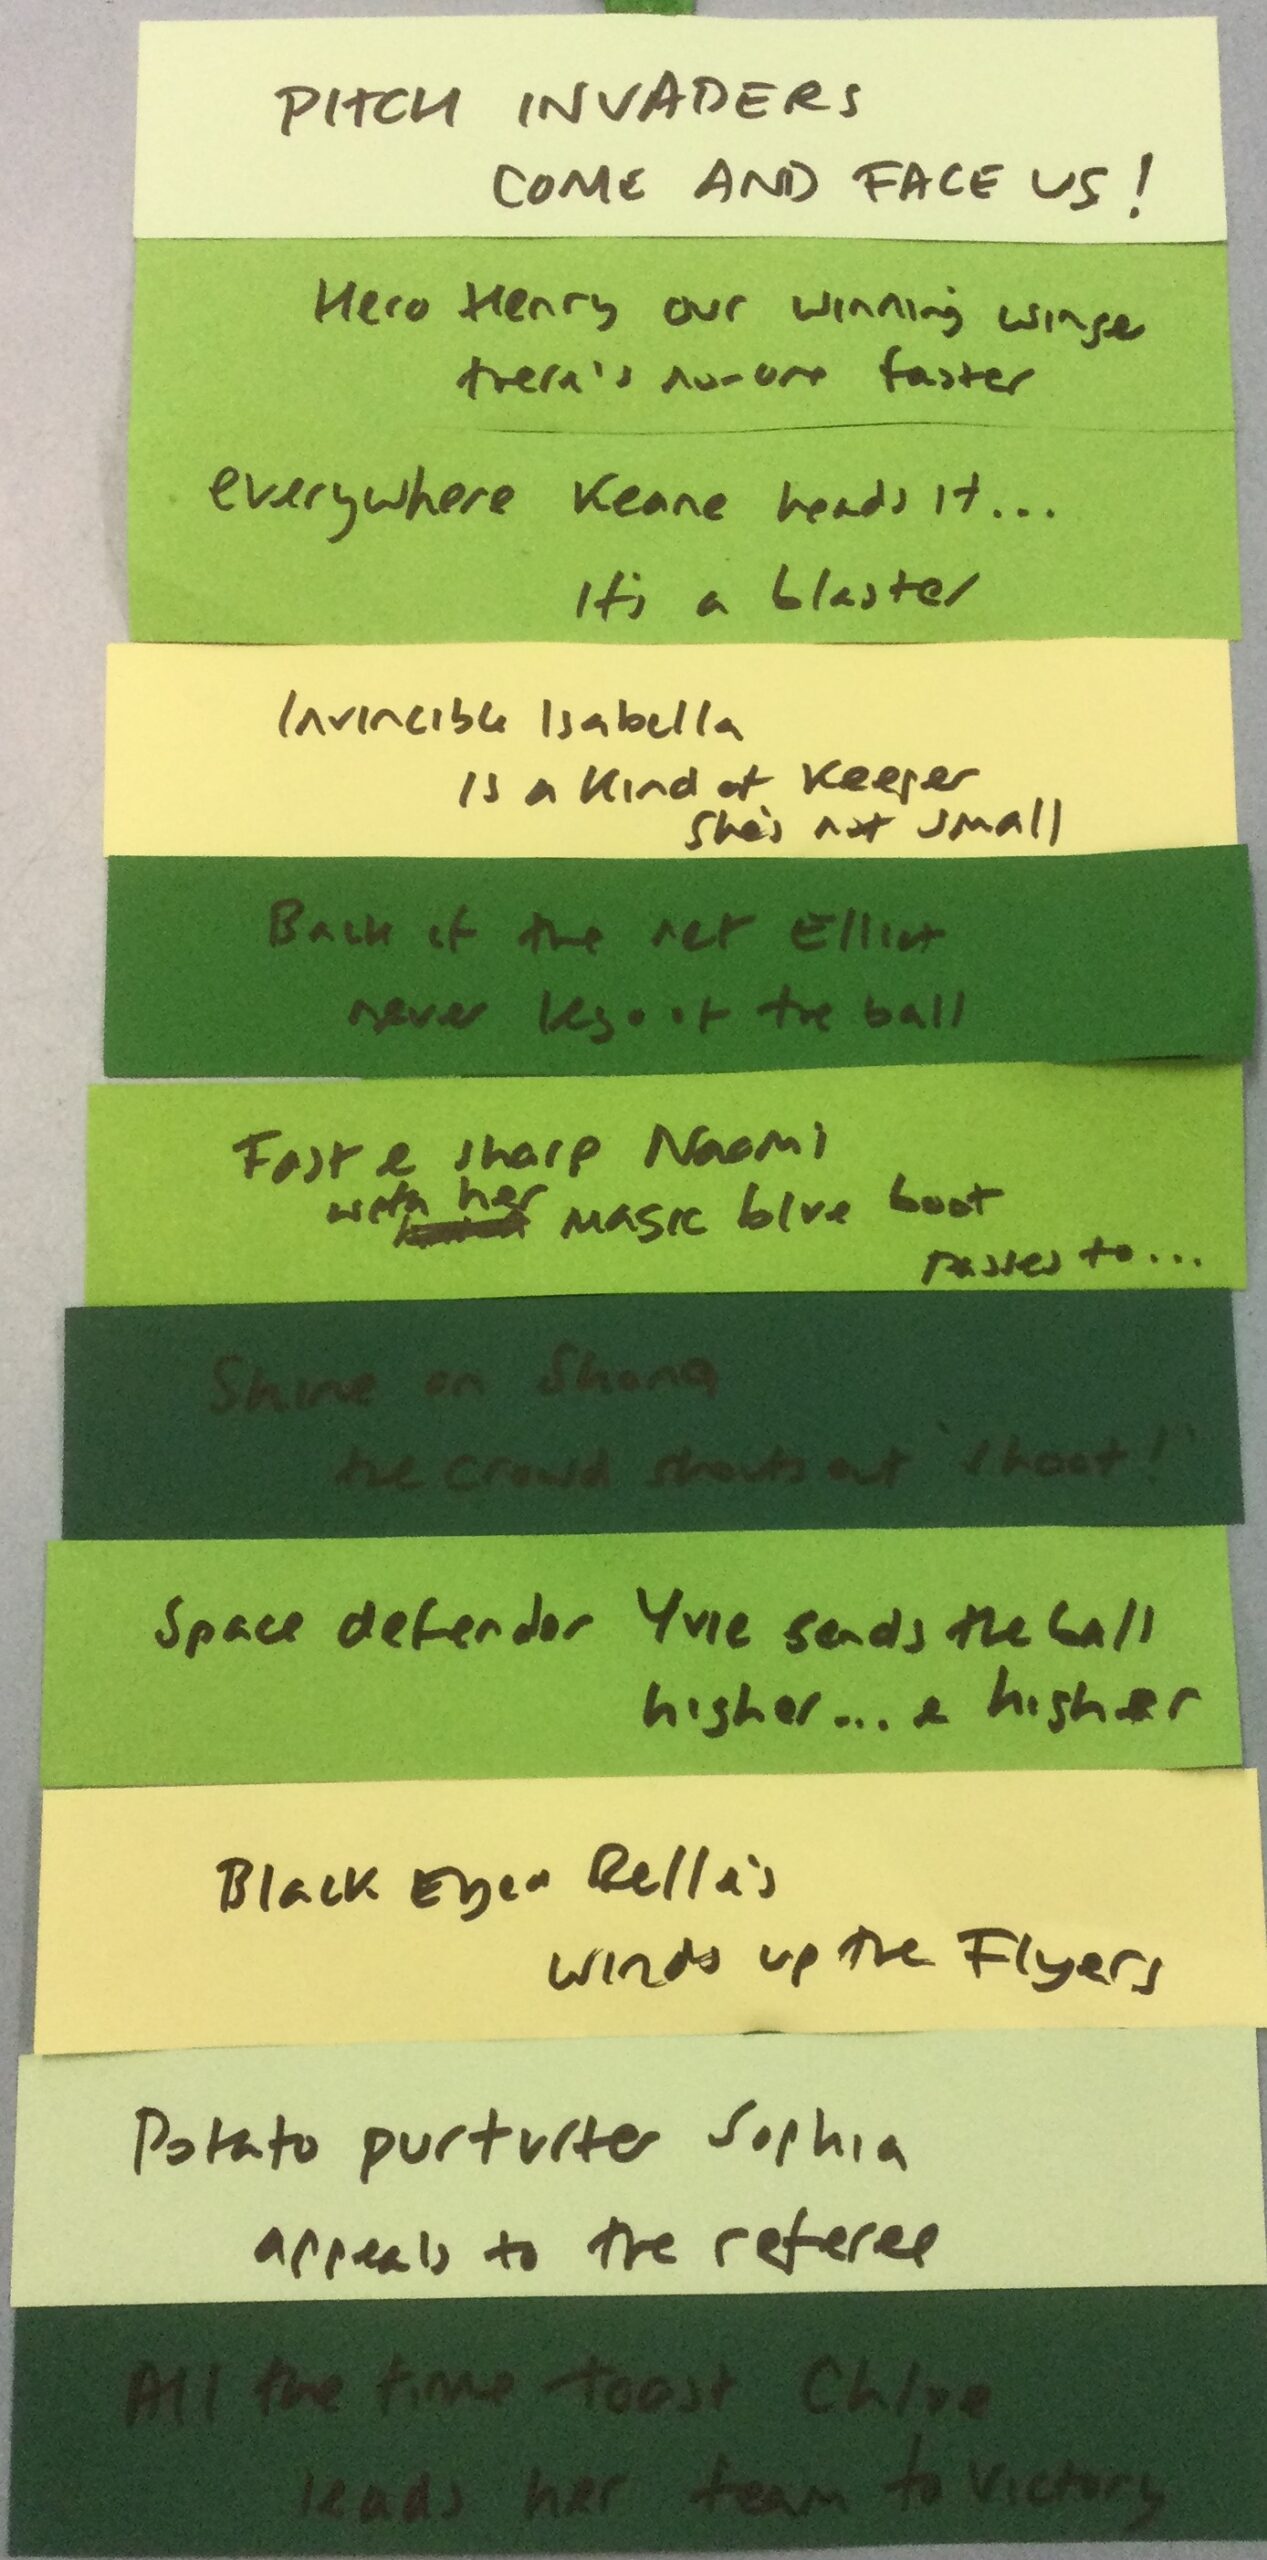 PITCH INVADERS
COME AND FACE US!
Hero Henry our winning winge
there's no-one faster
everywhere Keane heads it...
it's a blaster
Invincible Isabella
is a kind of keeper
she's not small
Back of the net Elliot
never legs it the ball
Fast & sharp Naomi
with her magic blue boot
passes to...
Shine on Shona
the crowd shouts out 'shoot!'
Space defendor Yvie sends the ball
higher... & higher
Black Eyed Bella's
winds up the Flyers
Potato purturter Sophia
appeals to the referee
All the time toast Chloe
leads her team to victory